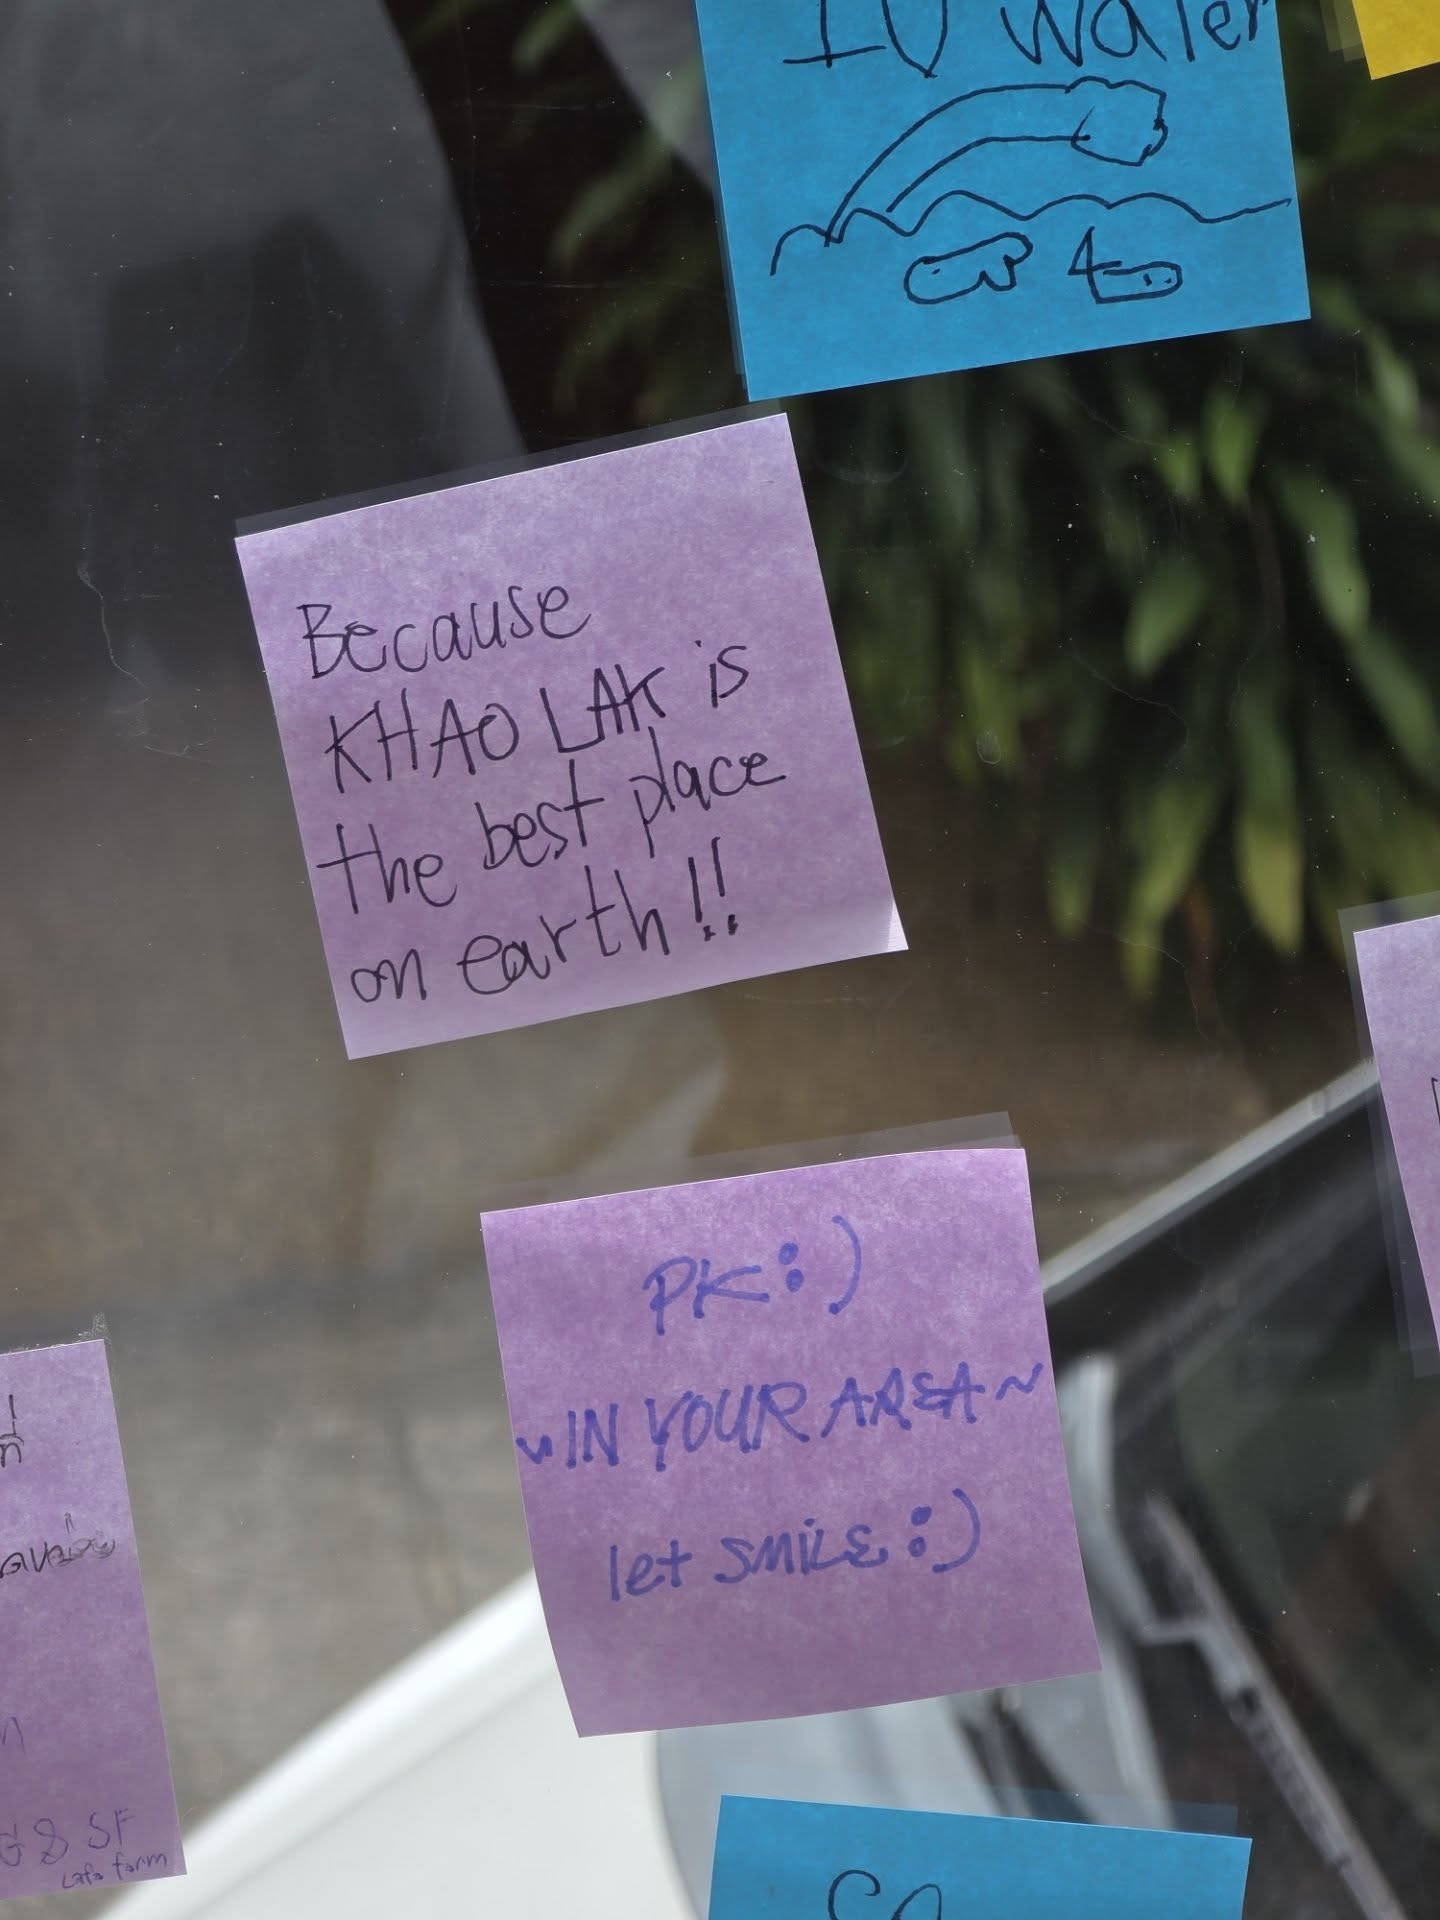 IU water
Because
KHAO LAK is
the best place
on earth!!
PK:)
~IN YOUR AREA~
let SMiLE:)
ที่
G & SF
Lafa farm
So